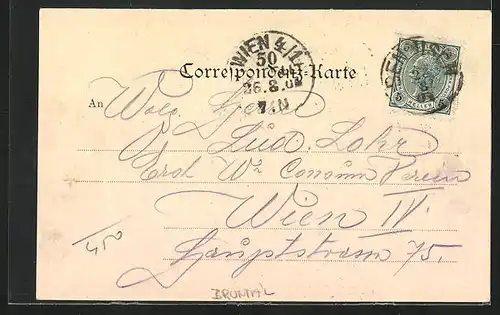 WIEN 4/1
50
26.8.02
7.N
Correspondenz-Karte
5 HELLER 5
An Wolg.
Lud. Lohr
Erst Wr Consum Verein
Wien IV.
Hauptstrasse 75.
450
BRUNTAL